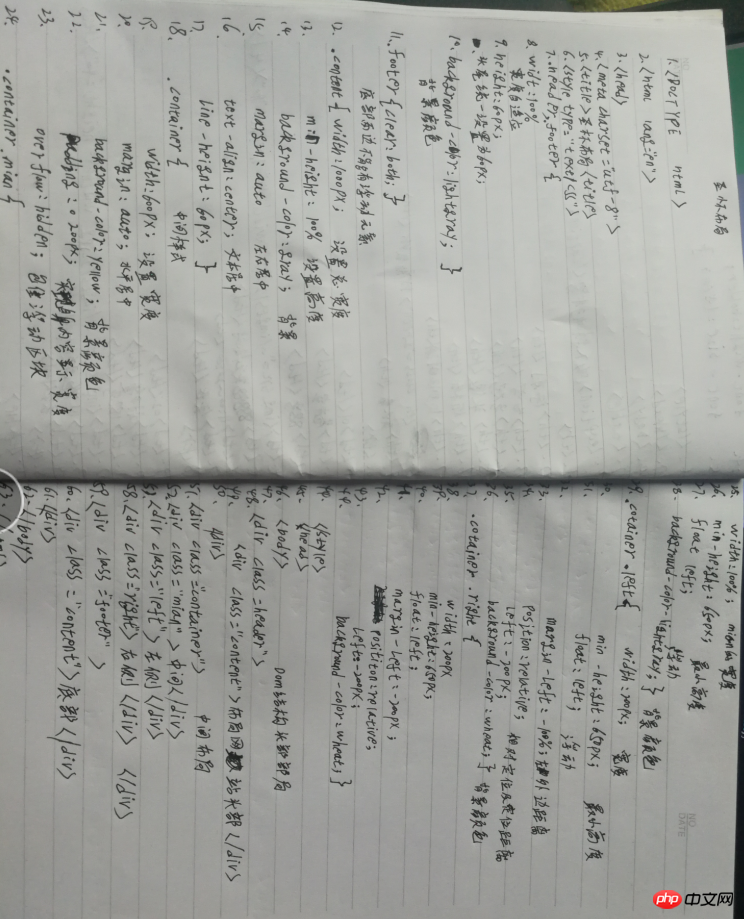 圣杯布局
1. <!DOCTYPE html>
2. <html lang="en">
3. <head>
4. <meta charset="utf-8">
5. <title>圣杯布局<title>
6. <style type="text/css">
7. .header,.footer {
8. width:100%
宽度自适应
9. height:60px;
头尾统一设置为60px;
10. background-color:lightgray; }
背景颜色
11. .footer {clear:both; }
12. .content { width:1000px; 设置总宽度
13. min-height:100% 设置高度
14. background-color:gray; 背景
15. margin:auto 左右居中
16. text-align:center; 文本居中
17. line-height:60px; }
18. .container { 中间样式
19. width:600px; 设置宽度
20. margin:auto; 水平居中
21. background-color:yellow; 背景颜色
22. padding:0 200px;
23. overflow:hidden; 包住浮动区块
24. .container.mian {
25. width:100%;
26. min-height:650px; 最小高度
27. float left; 浮动
28. background-color:lightgray; } 背景颜色
29. .cotainer.left{ width:200px; 宽度
min-height:650px; 最小高度
float:left; 浮动
margin-left:-100%;
position:relative;
left:-200px;
background-color:wheat; } 背景颜色
.cotainer.right {
width:200px
min-height:650px;
float:left;
margin-left:-200px;
position:relative;
left:-200px;
background-color:wheat; }
</style>
</head>
46. <body> Dom结构头部部局
<div class=header">
<div class="content"> 头部</div>
</div>
51. <div class="container"> 中间布局
52. <div class="mian"> 中间</div>
<div class="left"> 左侧</div>
58. <div class="right"> 右侧</div> </div>
59. <div class="footer">
60. <div class="content"> 底部</div>
61. </div>
</body>
NO.
DATE
php 中文网